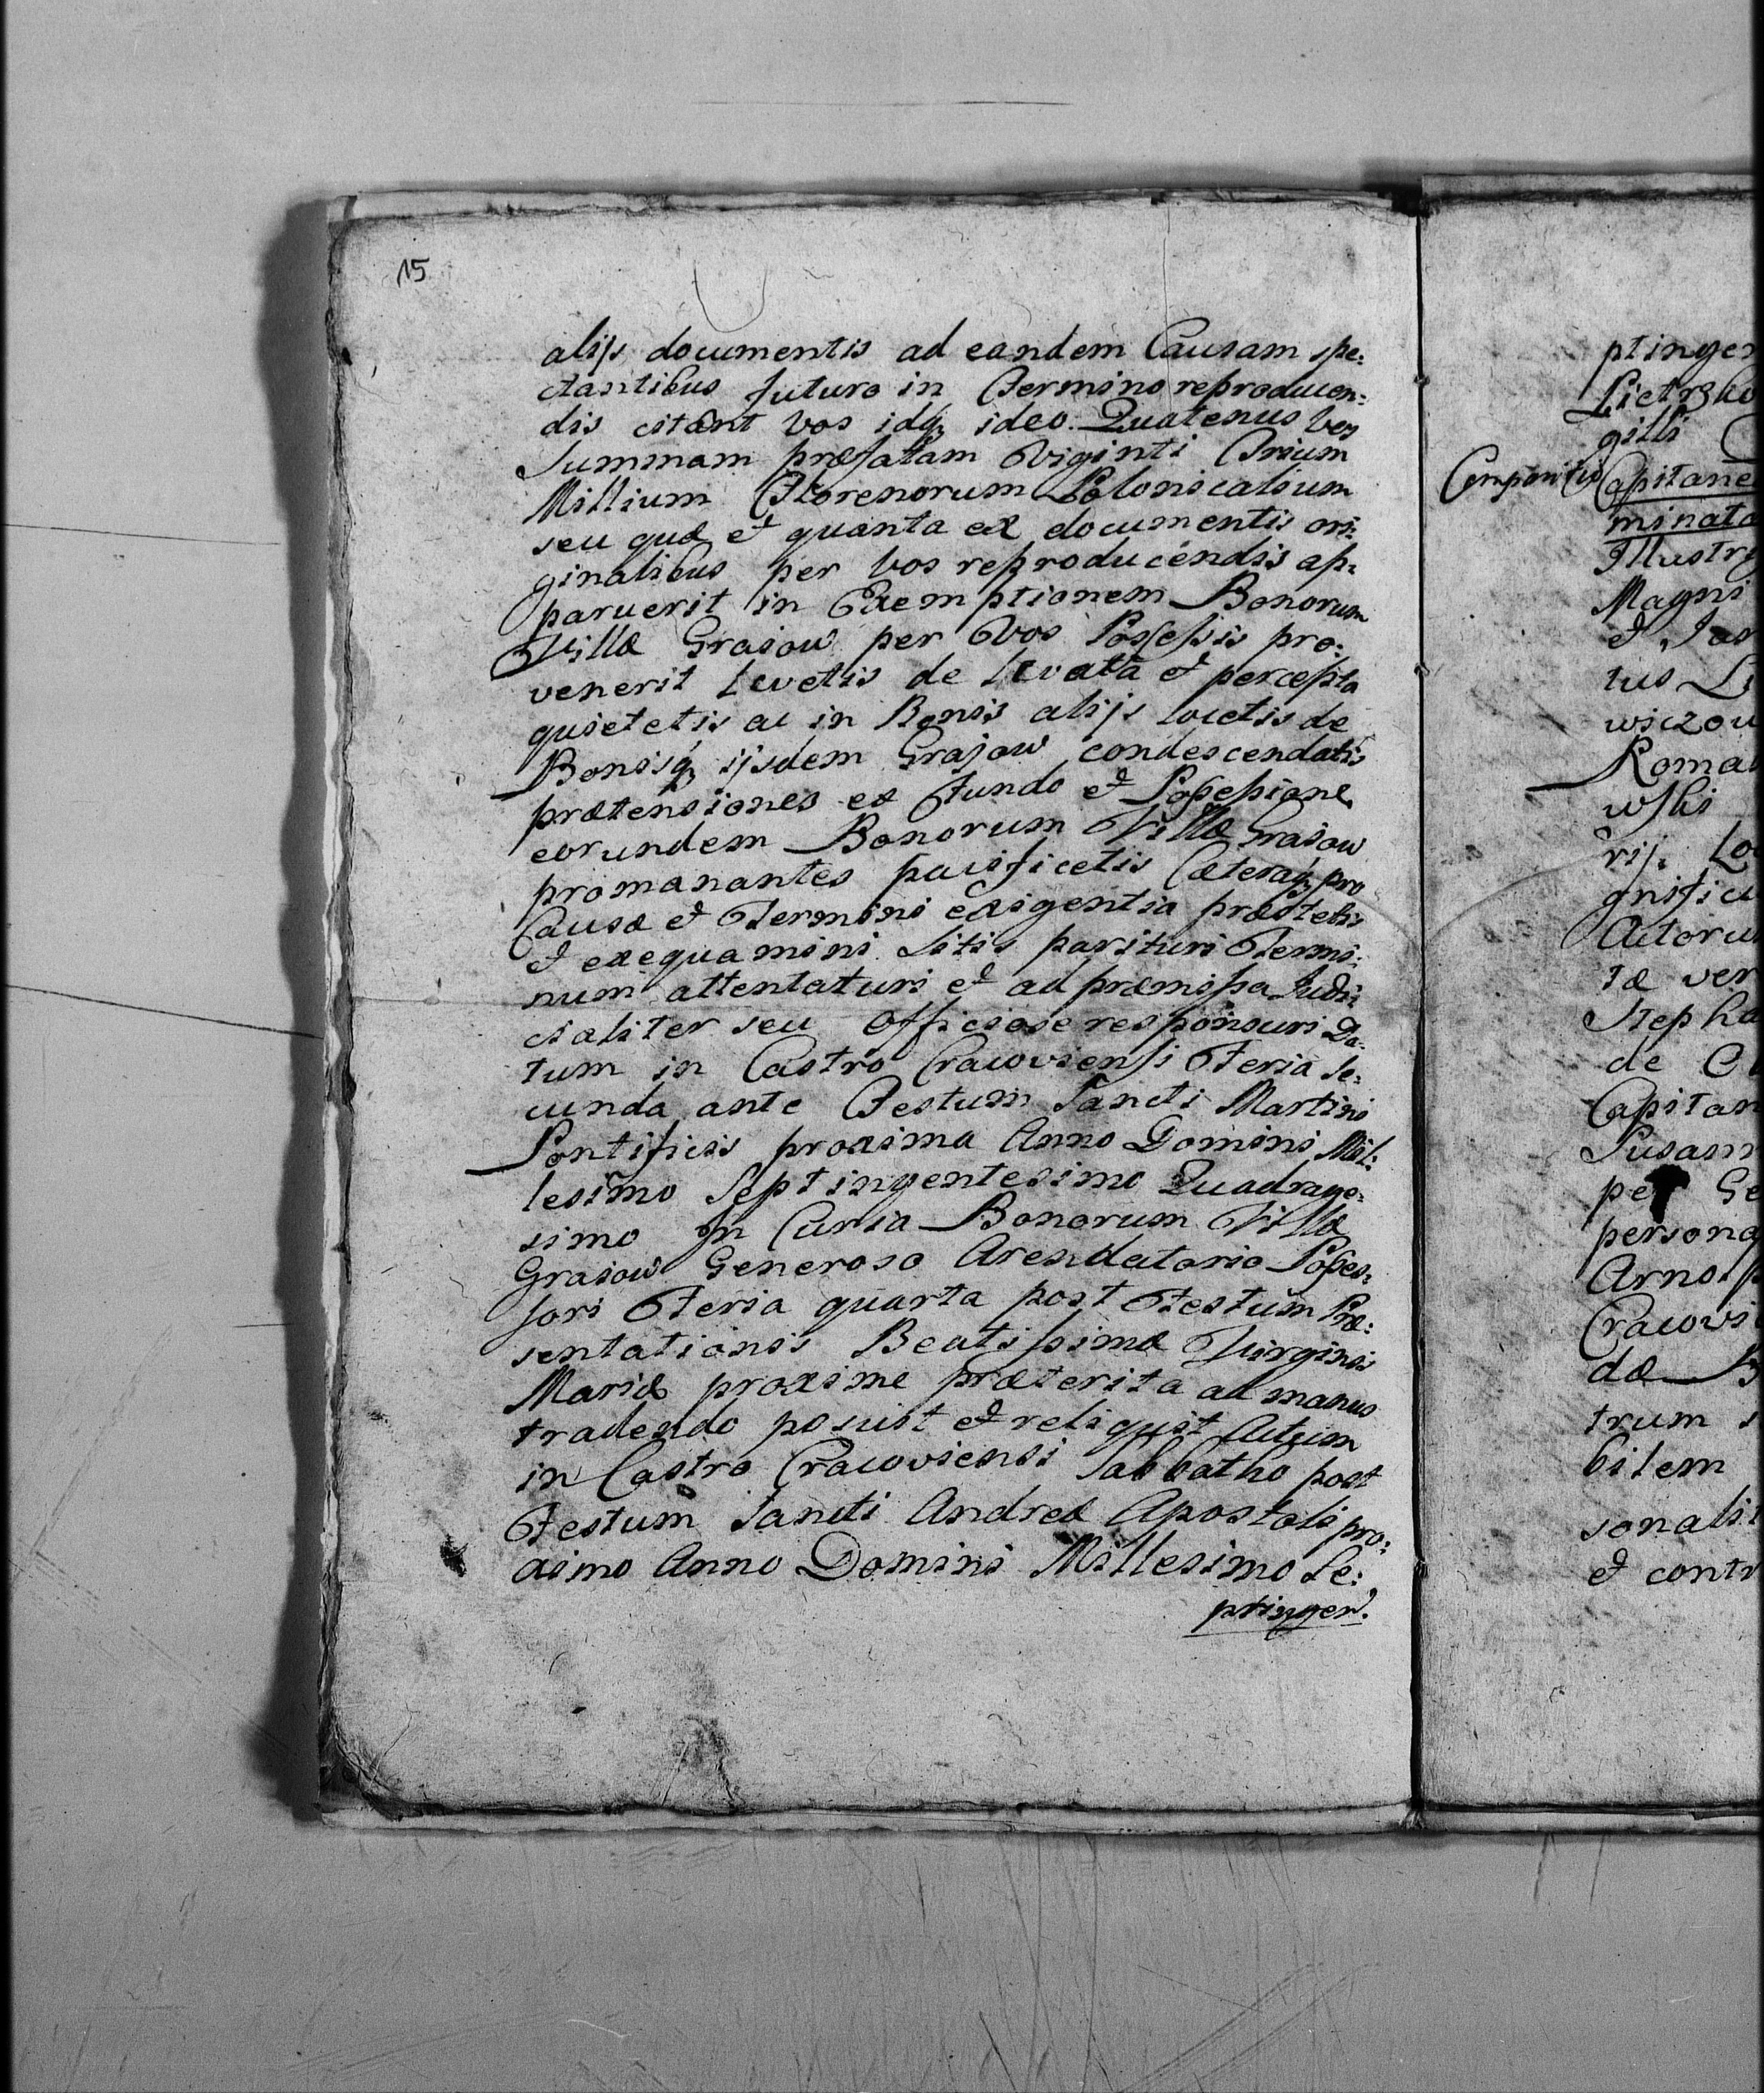 15
alijs documentis ad eandem Causam spe:
ctantibus futuro in Termino reproducen:
dis citant vos idq; ideo. Quatenus vos
Summam præfatam Viginti Trium
Millium Florenorum Polonicalium
seu quæ et quanta ex documentis ori:
ginalibus per vos reproducendis ap:
paruerit in Exemptionem Bonorum
Villæ Grajow per Vos Possessis pro:
venerit levetis de levata et percepta
quietetis ac in Bonis alijs locetis de
Bonisq; ijsdem Grajow condescendatis
prætensiones ex Fundo et Possessione
eorundem Bonorum Villæ Grajow
promanantes pacificetis Cæteraq; pro
Causæ et Termini exigentia præstetis
et exequamini Litis parituri Termi:
num attentaturi et ad præmissa Judi:
cialiter seu Officiose responsuri Da:
tum in Castro Cracoviensi Feria Se:
cunda ante Festum Sancti Martini
Pontificis proxima Anno Domini Mil:
lesimo Septingentesimo Quadrage:
simo In Curia Bonorum Villæ
Grajow Generoso Arendatorio Posses:
sori Feria quarta post Festum Præ:
sentationis Beatissimæ Virginis
Mariæ proxime præterita ad manus
tradendo posuit et reliquit Actum
in Castro Cracoviensi Sabbatho post
Festum Sancti Andreæ Apostoli pro:
ximo Anno Domini Millesimo Se:
ptingen.
ptingen
Pietrzko
gilli
Compositio Capitane
minata
Illustr
Magni
et Jos
tus Li
wiczow
Roma
wski
rij. Lo
gnific
Actoru
tæ ver
Stepha
de C
Capitan
Susam
per Ge
persona
Arnol
Cracovi
dæ B
trum
bilem
sonali
et contr